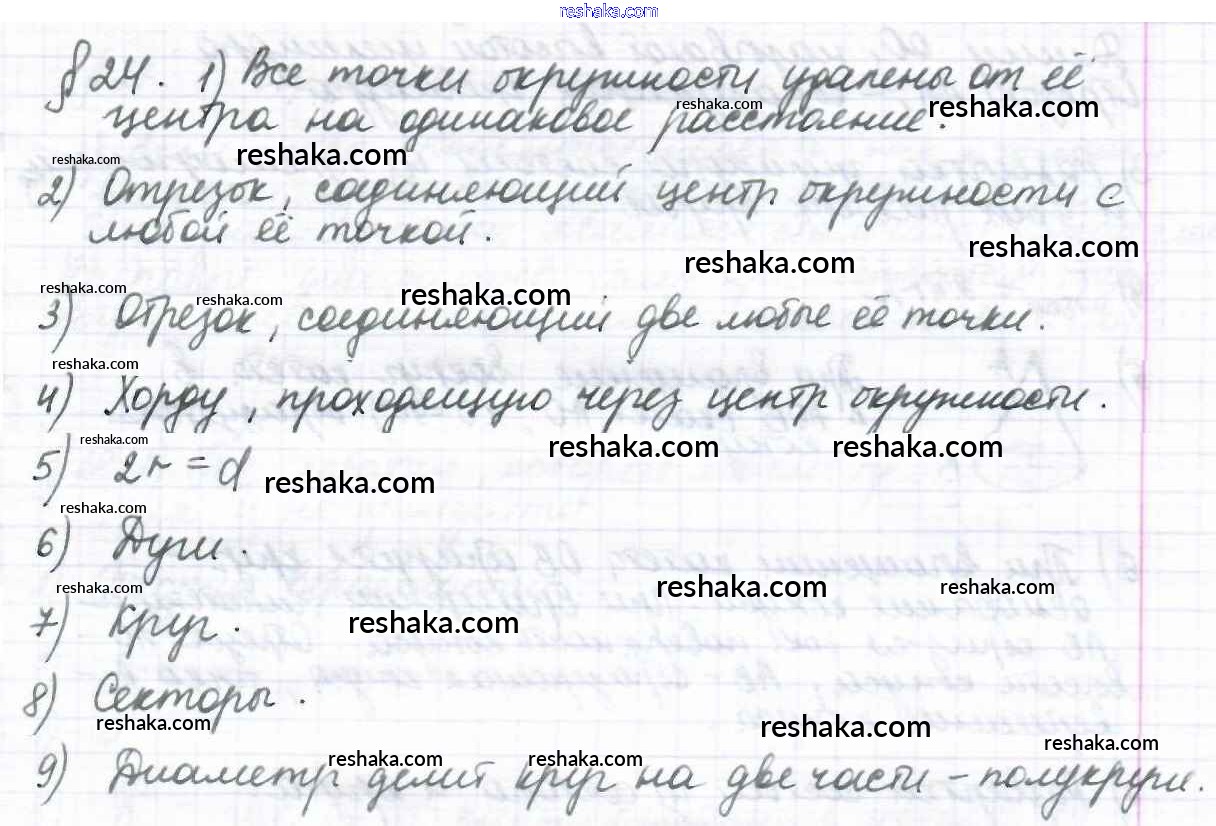 reshaka.com
§ 24. 1) Все точки окружности удалены от её
reshaka.com reshaka.com
центра на одинаковое расстояние.
reshaka.com reshaka.com
2) Отрезок, соединяющий центр окружности с
любой её точкой.
reshaka.com
reshaka.com
reshaka.com reshaka.com reshaka.com
3) Отрезок, соединяющий две любые её точки.
reshaka.com
4) Хорду, проходящую через центр окружности.
reshaka.com reshaka.com reshaka.com
5) 2r = d
reshaka.com
reshaka.com
6) Дуги.
reshaka.com reshaka.com reshaka.com
7) Круг.
reshaka.com
8) Секторы.
reshaka.com reshaka.com
reshaka.com reshaka.com reshaka.com
9) Диаметр делит круг на две части – полукруги.